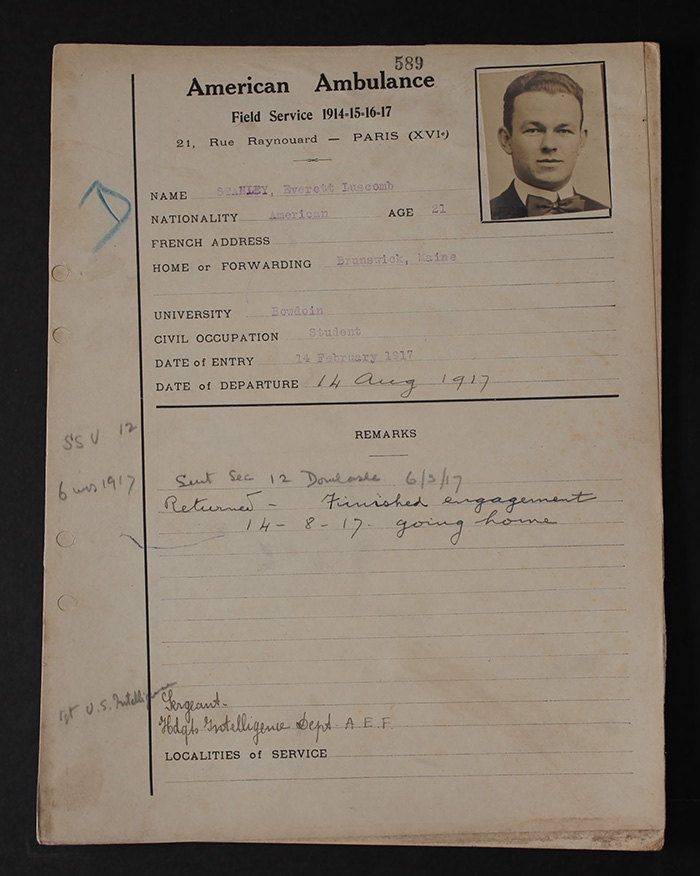 589
American Ambulance
Field Service 1914-15-16-17
21, Rue Raynouard — PARIS (XVIe)
NAME STANLEY, Everett Luscomb
NATIONALITY American AGE 21
FRENCH ADDRESS
HOME or FORWARDING Brunswick, Maine
UNIVERSITY Bowdoin
CIVIL OCCUPATION Student
DATE of ENTRY 14 February 1917
DATE of DEPARTURE 14 Aug 1917
REMARKS
SSU 12
6 mos 1917
Sent Sec 12 6/3/17
Returned - Finished engagement
14-8-17. going home
Sgt U.S. Intelligence
Sergeant-
Hdqts Intelligence Dept A.E.F.
LOCALITIES of SERVICE